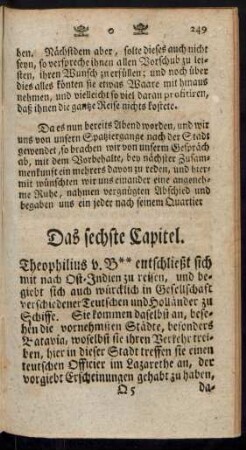 249
hen. Nächstdem aber, solte dieses auch nicht
seyn, so verspreche ihnen allen Vorschub zu lei-
sten, ihren Wunsch zu erfüllen; und noch über
dies alles könten sie etwas Waare mit hinaus
nehmen, und vielleicht so viel daran profitiren,
daß ihnen die gantze Reise nichts kostete.
Da es nun bereits Abend worden, und wir
uns von unsern Spatziergange nach der Stadt
gewendet, so brachen wir von unserm Gespräch
ab, mit dem Vorbehalte, bey nächster Zusam-
menkunft ein mehrers davon zu reden, und hier-
mit wünschten wir uns einander eine angeneh-
me Ruhe, nahmen vergnügten Abschied und
begaben uns ein jeder nach seinem Quartier
Das sechste Capitel.
Theophilius v. B** entschließt sich
mit nach Ost-Indien zu reisen, und be-
giebt sich auch würcklich in Gesellschaft
verschiedener Teutschen und Holländer zu
Schiffe. Sie kommen daselbst an, bese-
hen die vornehmsten Städte, besonders
Batavia, woselbst sie ihren Verkehr trei-
ben, hier in dieser Stadt treffen sie einen
teutschen Officier im Lazarethe an, der
vorgiebt Erscheinungen gehabt zu haben,
Q 5 da-